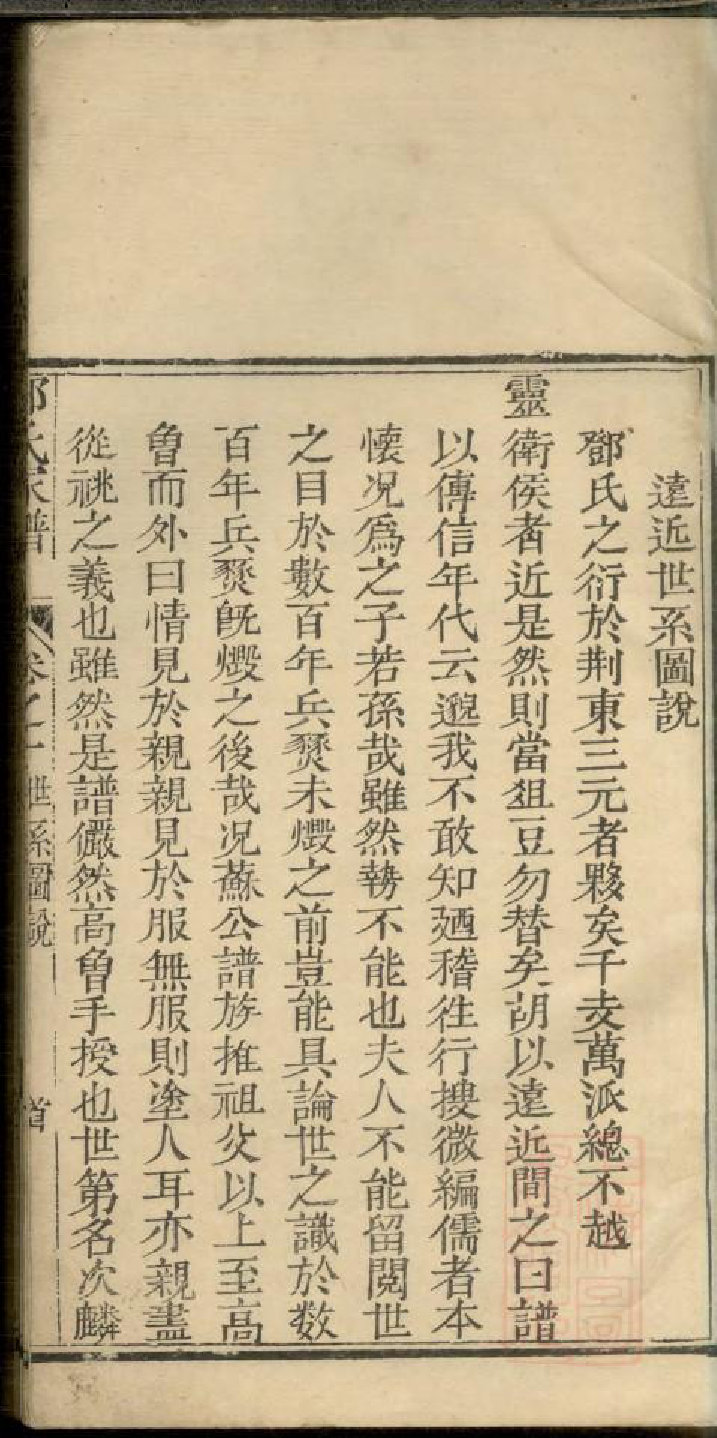 遠近世系圖說
鄧氏之衍於荆東三元者夥矣千支萬派總不越
靈衛侯者近是然則當俎豆勿替矣胡以遠近間之曰譜
以傳信年代云邈我不敢知廼稽徃行搜微編儒者本
懐况爲之子若孫哉雖然勢不能也夫人不能留閱世
之目於數百年兵燹未燬之前豈能具論世之識於数
百年兵燹既燬之後哉况蘇公譜族推祖父以上至高
曾而外曰情見於親親見於服無服則塗人耳亦親盡
從祧之義也雖然是譜儼然高曾手授也世第名次麟
鄧氏家譜 卷之一 世系圖說 首